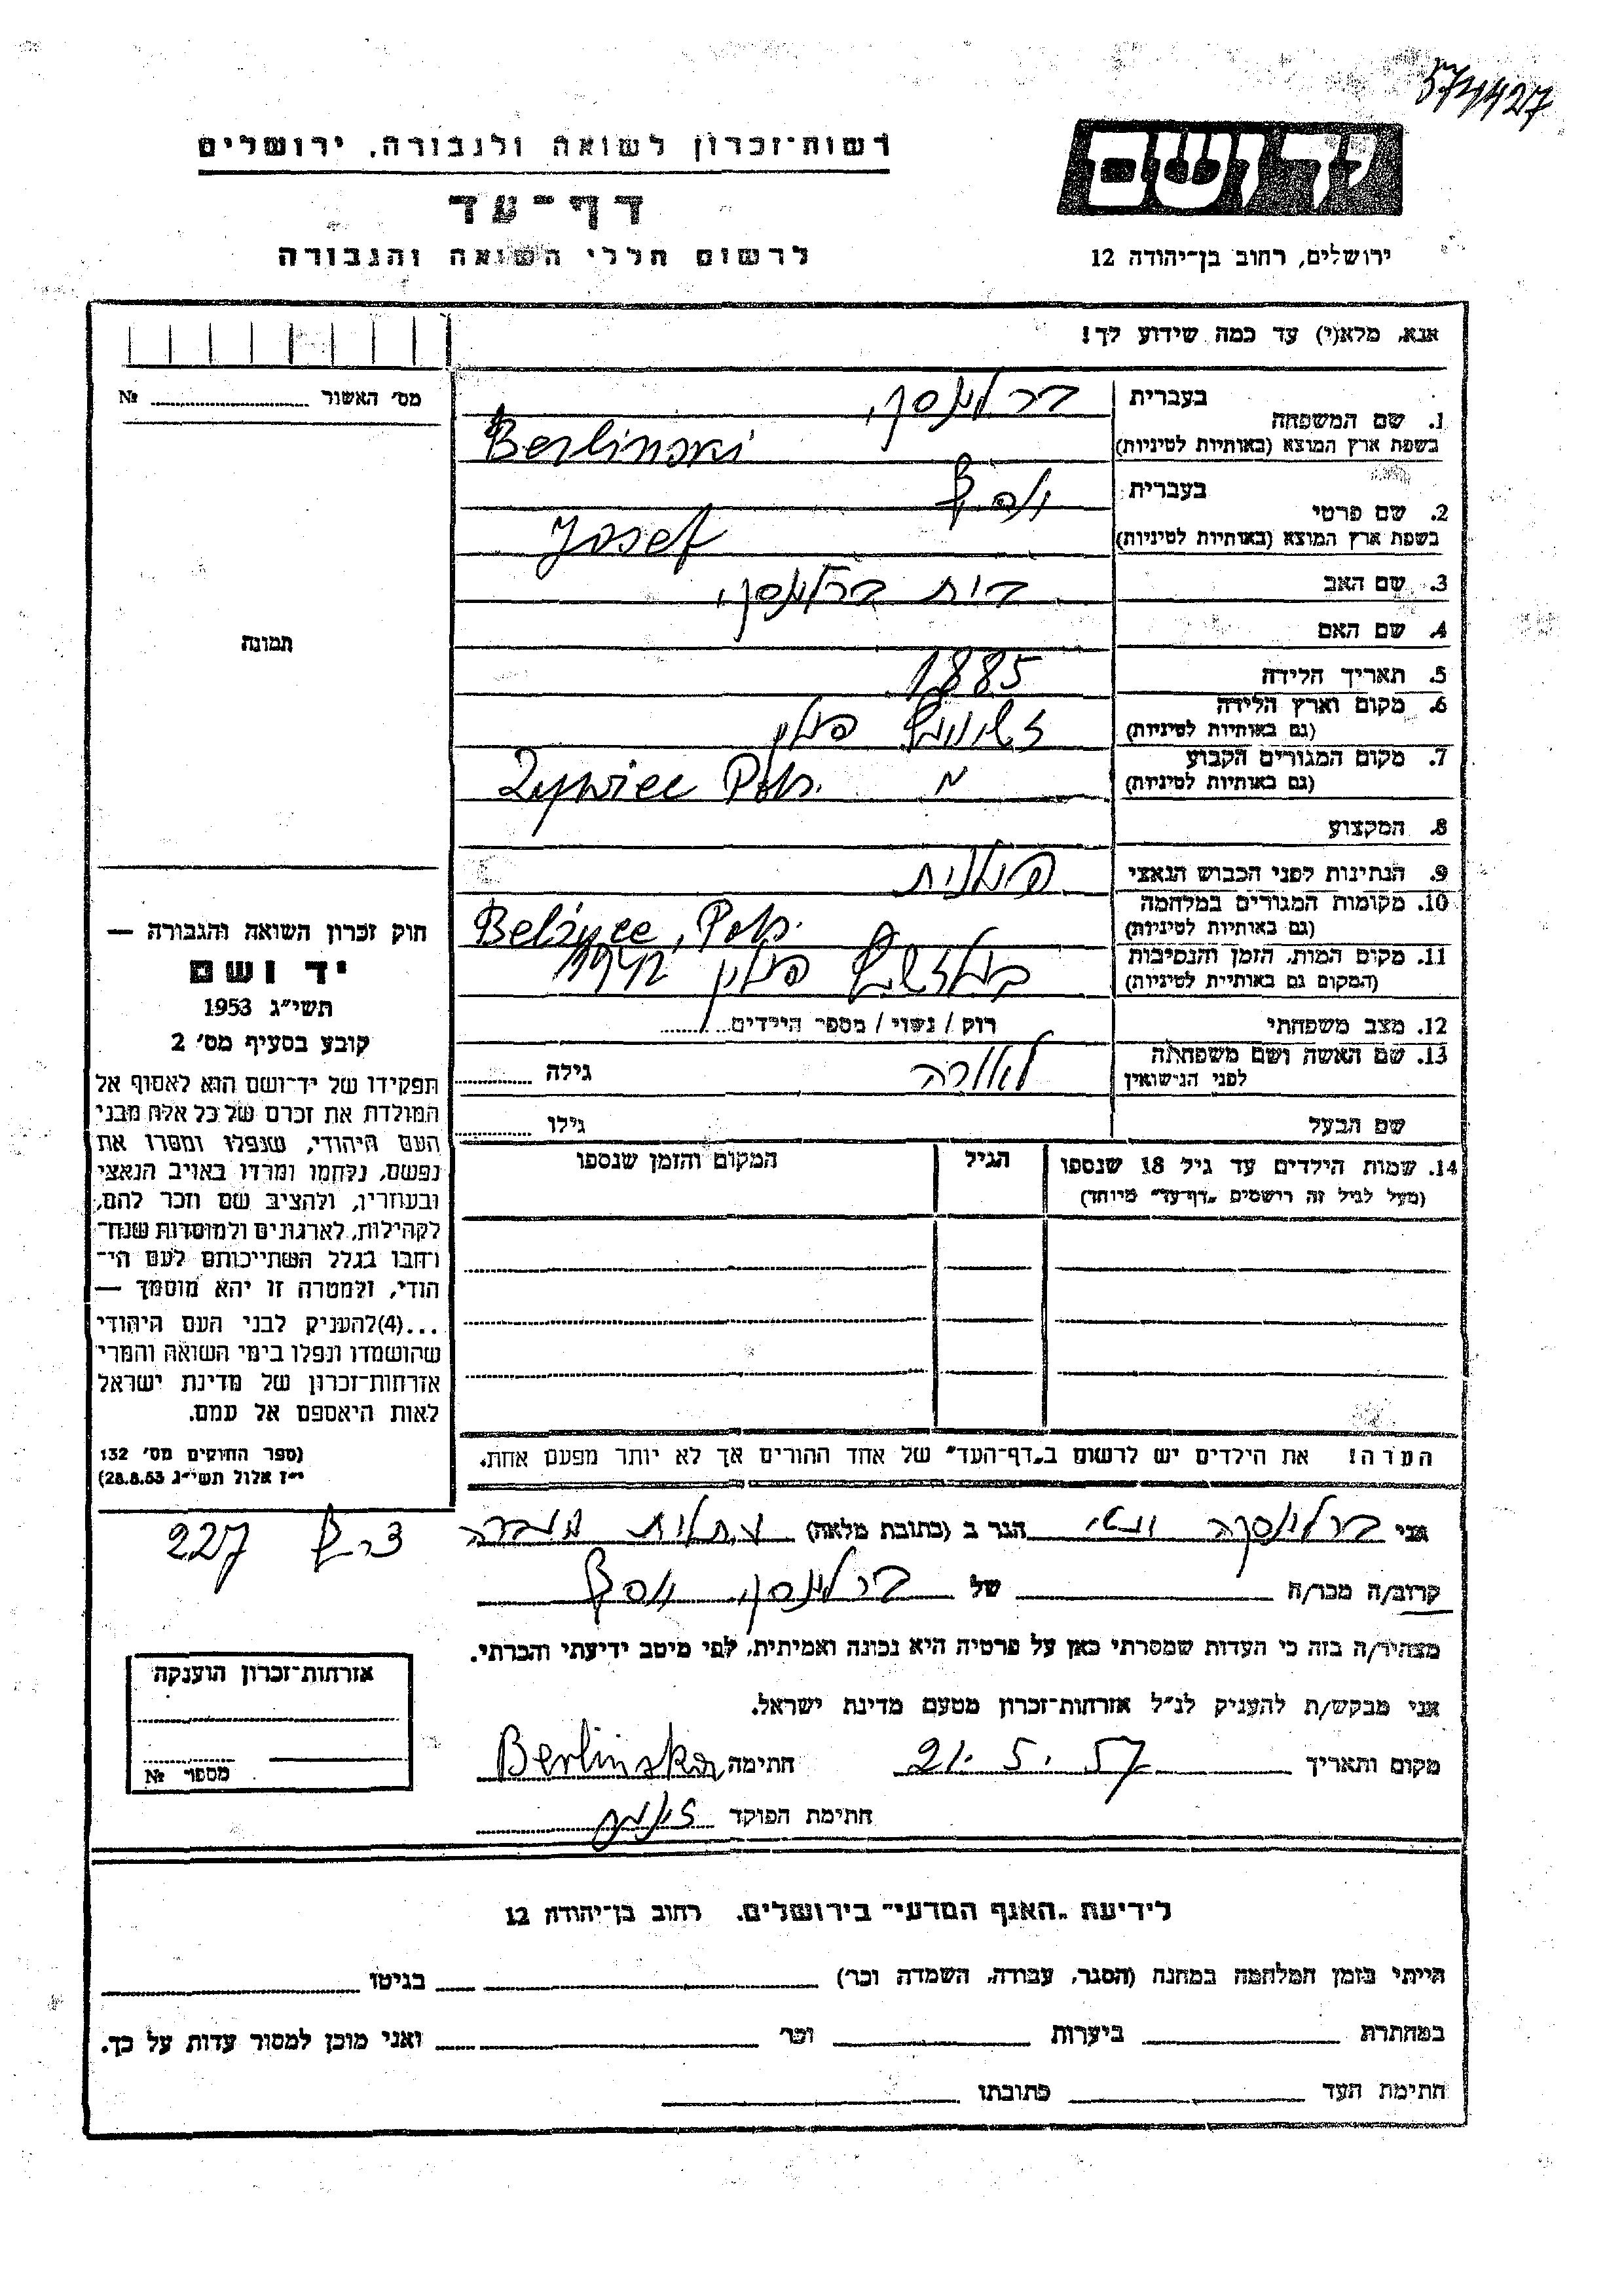 574427
רשות־זכרון לשואה ולגבורה, ירושלים
יד ושם
דף־עד
לרשום חללי השואה והגבורה
ירושלים, רחוב בן־יהודה 12
אנא, מלא(י) עד כמה שידוע לך!
מס׳ האשור ........ №
תמונה
1. שם המשפחה בעברית ברלינסקי
בשפת ארץ המוצא (באותיות לטיניות) Berlinski
2. שם פרטי בעברית יוסף
בשפת ארץ המוצא (באותיות לטיניות) Josef
3. שם האב דוד ברלינסקי
4. שם האם
5. תאריך הלידה 1885
6. מקום וארץ הלידה (גם באותיות לטיניות) פולין
7. מקום המגורים הקבוע (גם באותיות לטיניות) Zywiec Pols.
8. המקצוע
9. הנתינות לפני הכבוש הנאצי פולנית
10. מקומות המגורים במלחמה (גם באותיות לטיניות) Belzyce, Pols.
11. מקום המות, הזמן והנסיבות (המקום גם באותיית לטיניות) פולין 1942
12. מצב משפחתי רוק / נשוי / מספר הילדים........
13. שם האשה ושם משפחתה לפני הנישואין גילה ........
שם הבעל גילו ........
14. שמות הילדים עד גיל 18 שנספו (מעל לגיל זה רושמים „דף־עד״ מיוחד) הגיל המקום והזמן שנספו
חוק זכרון השואה והגבורה —
יד ושם
תשי״ג 1953
קובע בסעיף מס׳ 2
תפקידו של יד־ושם הוא לאסוף אל
המולדת את זכרם של כל אלה מבני
העם היהודי, שנפלו ומסרו את
נפשם, נלחמו ומרדו באויב הנאצי
ובעוזריו, ולהציב שם וזכר להם,
לקהילות, לארגונים ולמוסדות שנח־
רחבו בגלל השתייכותם לעם הי־
הודי, ולמטרה זו יהא מוסמך —
...(4) להעניק לבני העם היהודי
שהושמדו ונפלו בימי השואה והמרי
אזרחות־זכרון של מדינת ישראל
לאות היאספם אל עמם.
(ספר החוקים מס׳ 132
י״ז אלול תשי״ג 28.8.53)
הערה! את הילדים יש לרשום ב„דף־העד״ של אחד ההורים אך לא יותר מפעם אחת.
אני ברלינסקה הגר ב (כתובת מלאה) עתלית מעברה
צריף 227
קרוב/ה מכר/ה של ברלינסקי יוסף
מצהיר/ה בזה כי העדות שמסרתי כאן על פרטיה היא נכונה ואמיתית, לפי מיטב ידיעתי והכרתי.
אני מבקש/ת להעניק לנ״ל אזרחות־זכרון מטעם מדינת ישראל.
מקום ותאריך 21.5.57 חתימה Berlinska
חתימת הפוקד
אזרחות־זכרון הוענקה
מספר №
לידיעת „האגף המדעי״ בירושלים, רחוב בן־יהודה 12
הייתי בזמן המלחמה במחנה (הסגר, עבודה, השמדה וכר׳) בגיטו
במחתרת ביערות וכר׳ ואני מוכן למסור עדות על כך.
חתימת העד כתובתו